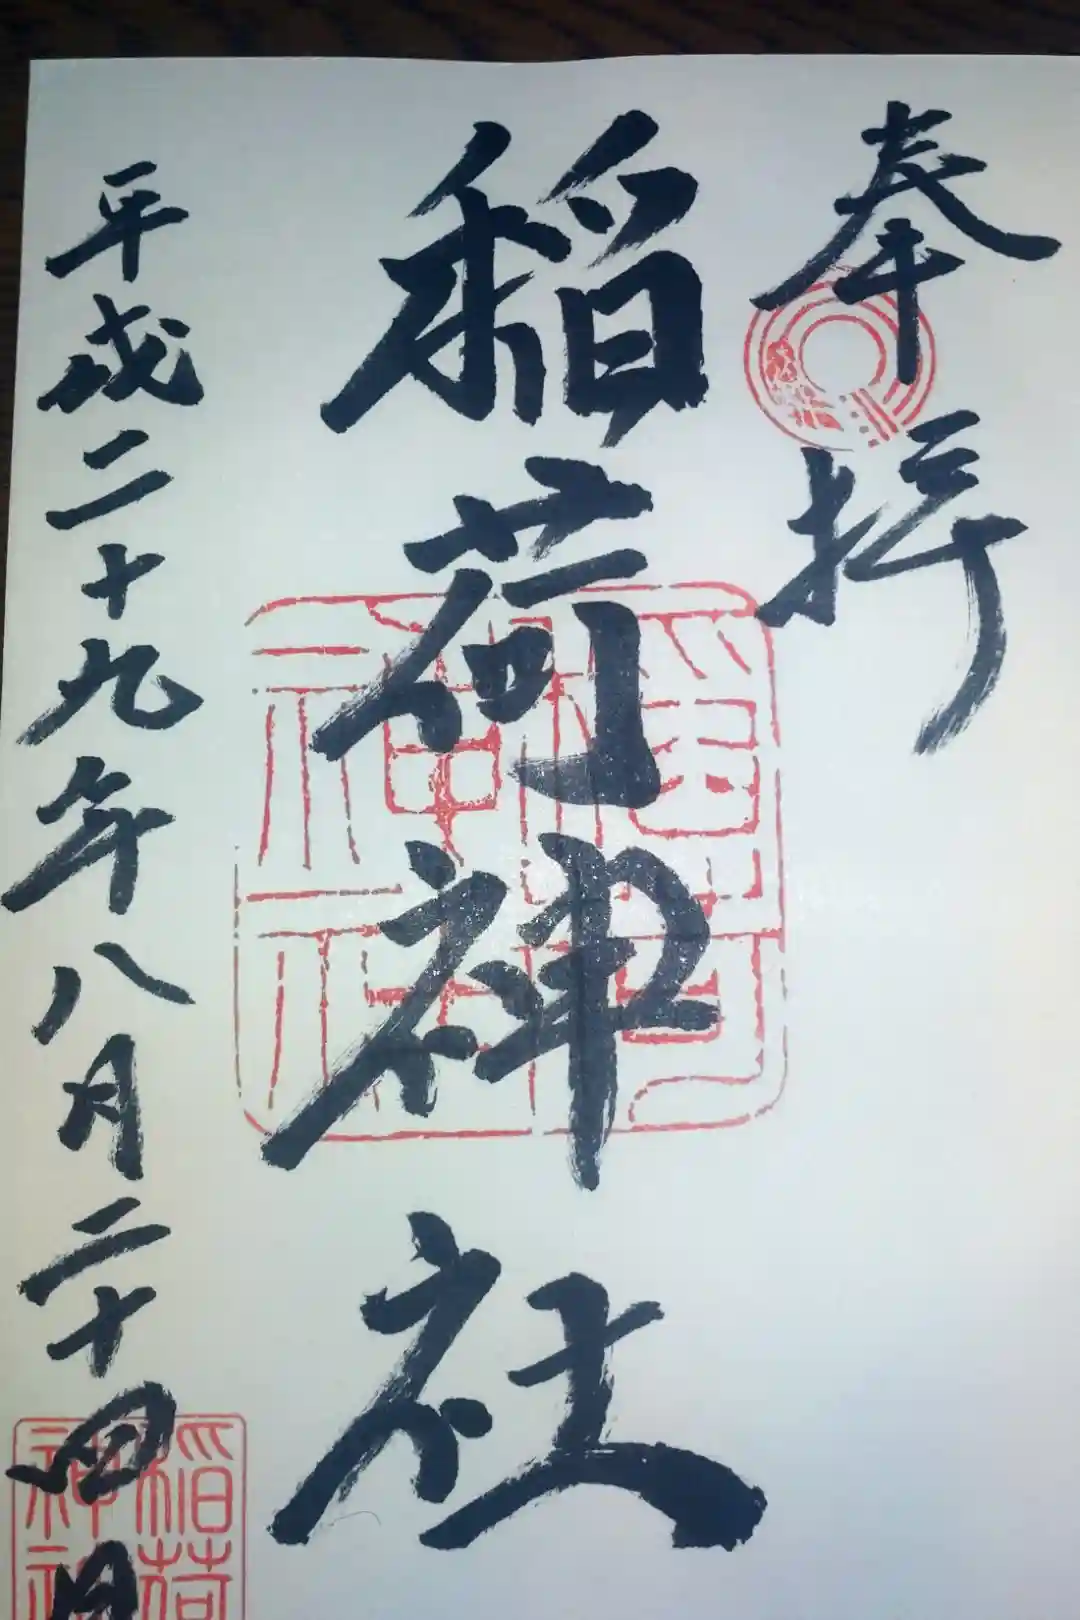 奉拝
稲荷神社
平成二十九年八月二十四日
稲荷
神社